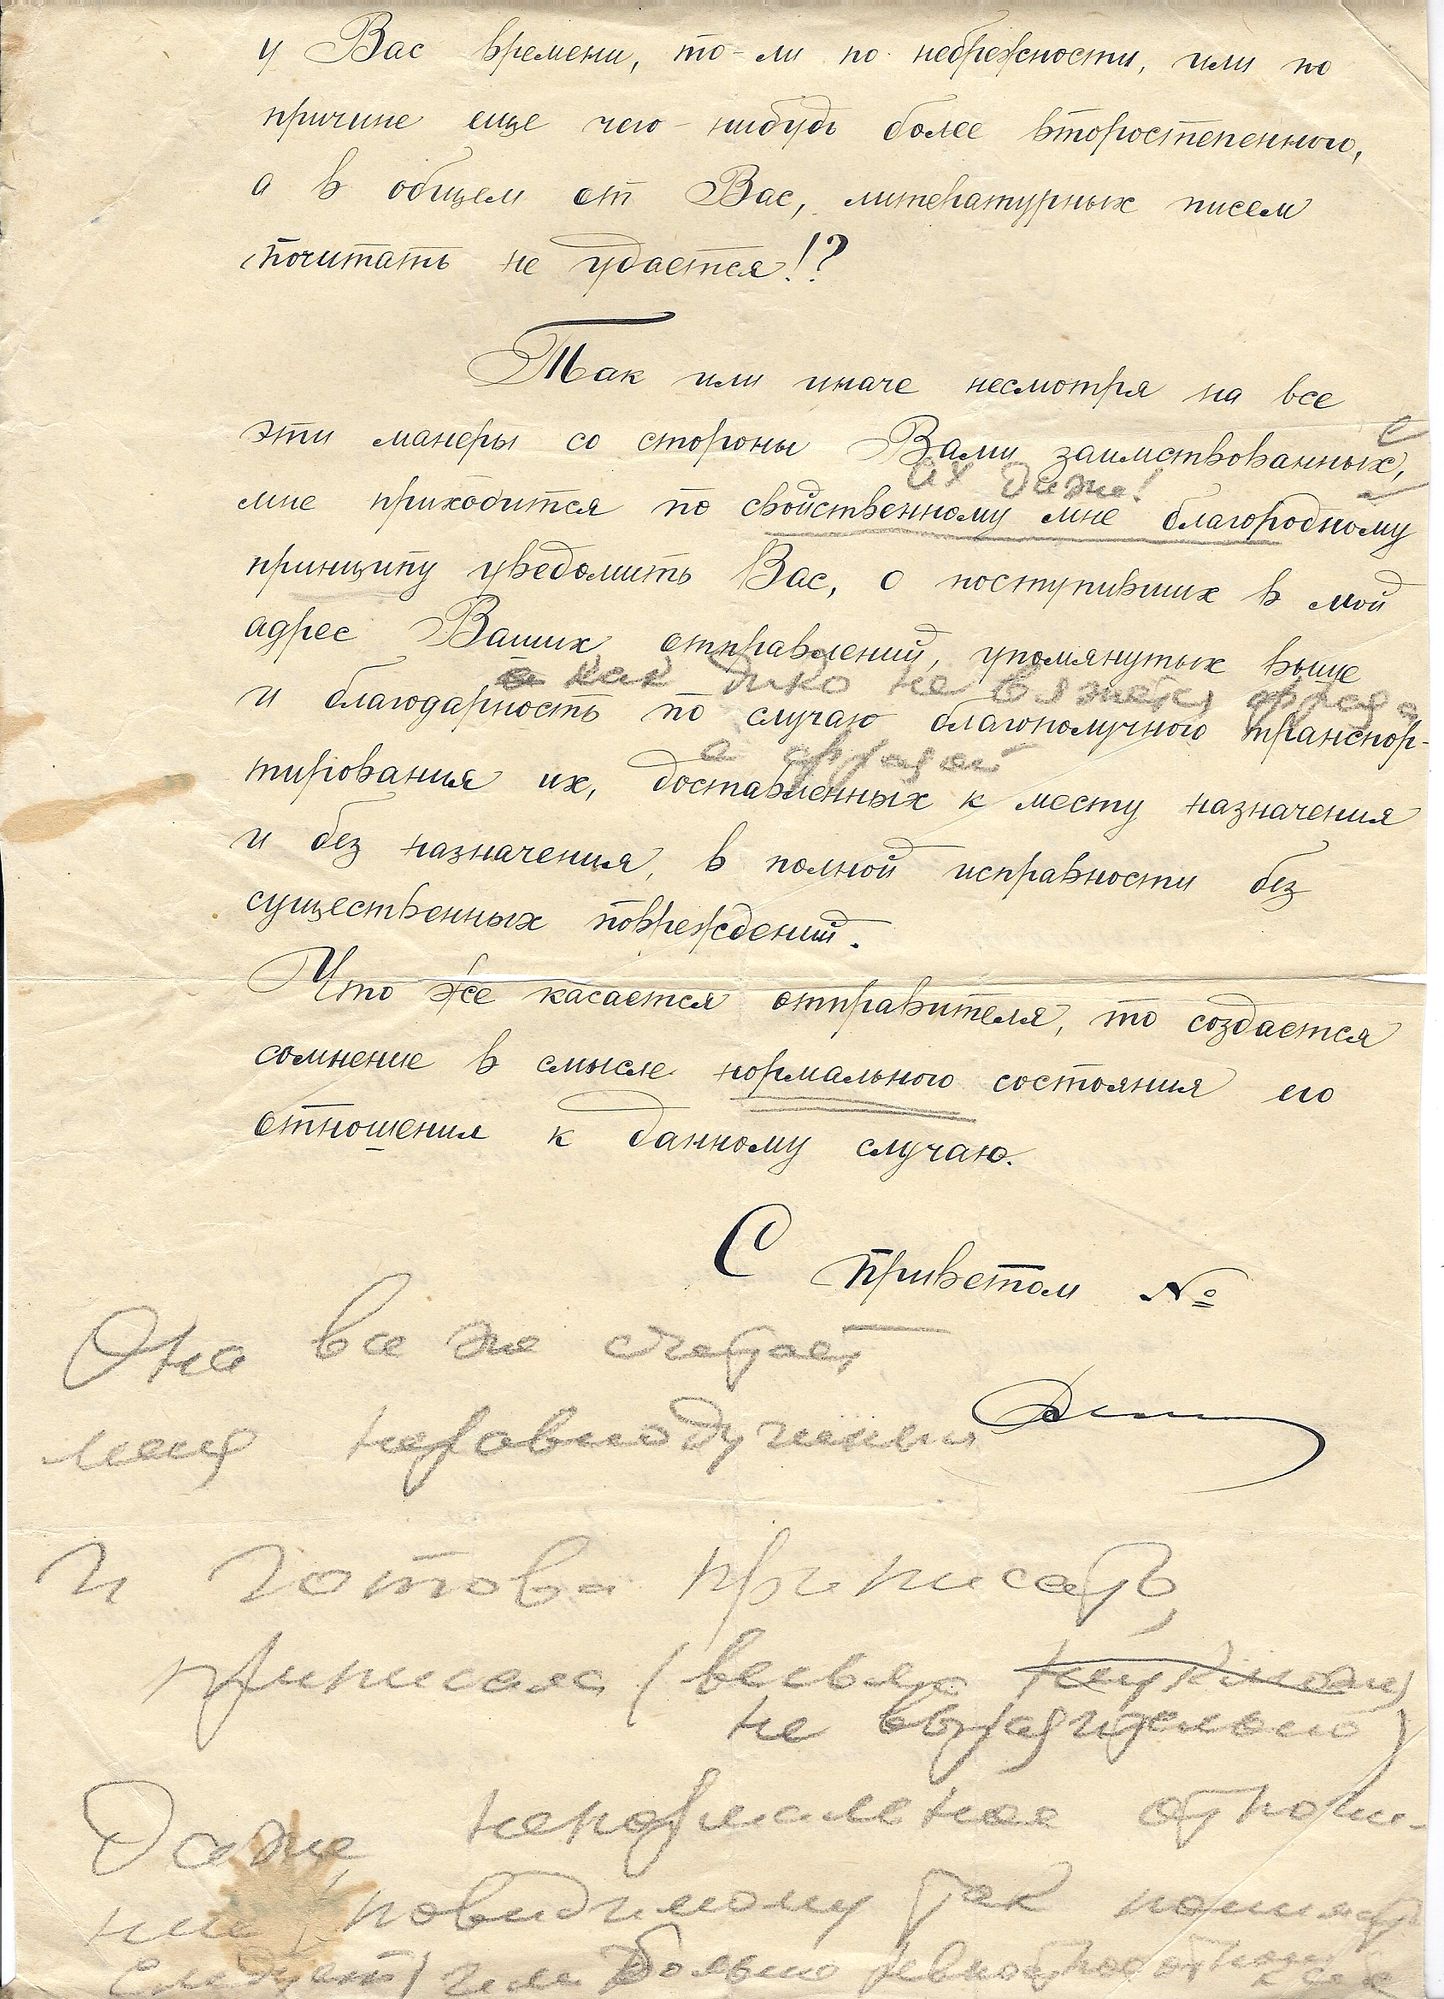 у Вас времени, то-ли по небрежности, или по
причине еще чего-нибудь более второстепенного,
а в общем от Вас, литературных писем
почитать не удается!?
Так или иначе несмотря на все
эти манеры со стороны Вами заимствованных,
их даже!
мне приходится по свойственному мне благородному
принципу уведомить Вас, о поступивших в мой
адрес Ваших отправлений, упомянутых выше
а как дико не вяжется фраза
и благодарность по случаю благополучного транспор-
с фразой
тирования их, доставленных к месту назначения
и без назначения, в полной исправности без
существенных повреждений.
Что же касается отправителя, то создается
сомнение в смысле нормального состояния его
отношения к данному случаю.
С приветом №
Она все же считает
меня неравнодушным
и готова приписать,
приписала (весьма
не выразительно)
Даже ненормальное отноше-
ние, повидимому так понимать
следует